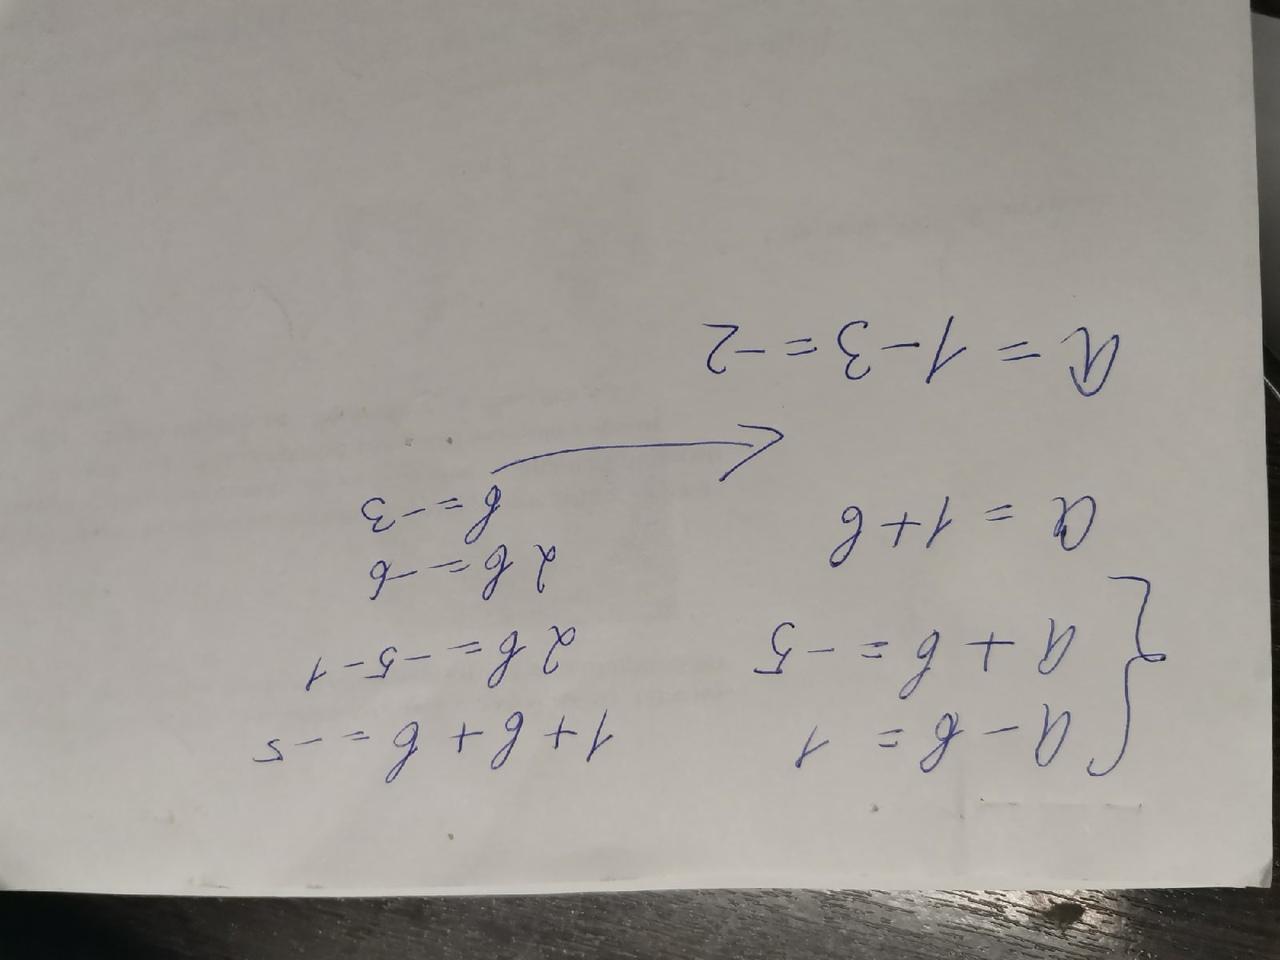 a - b = 1
a + b = -5
a = 1 + b
1 + b + b = -5
2b = -5 - 1
2b = -6
b = -3
a = 1 - 3 = -2